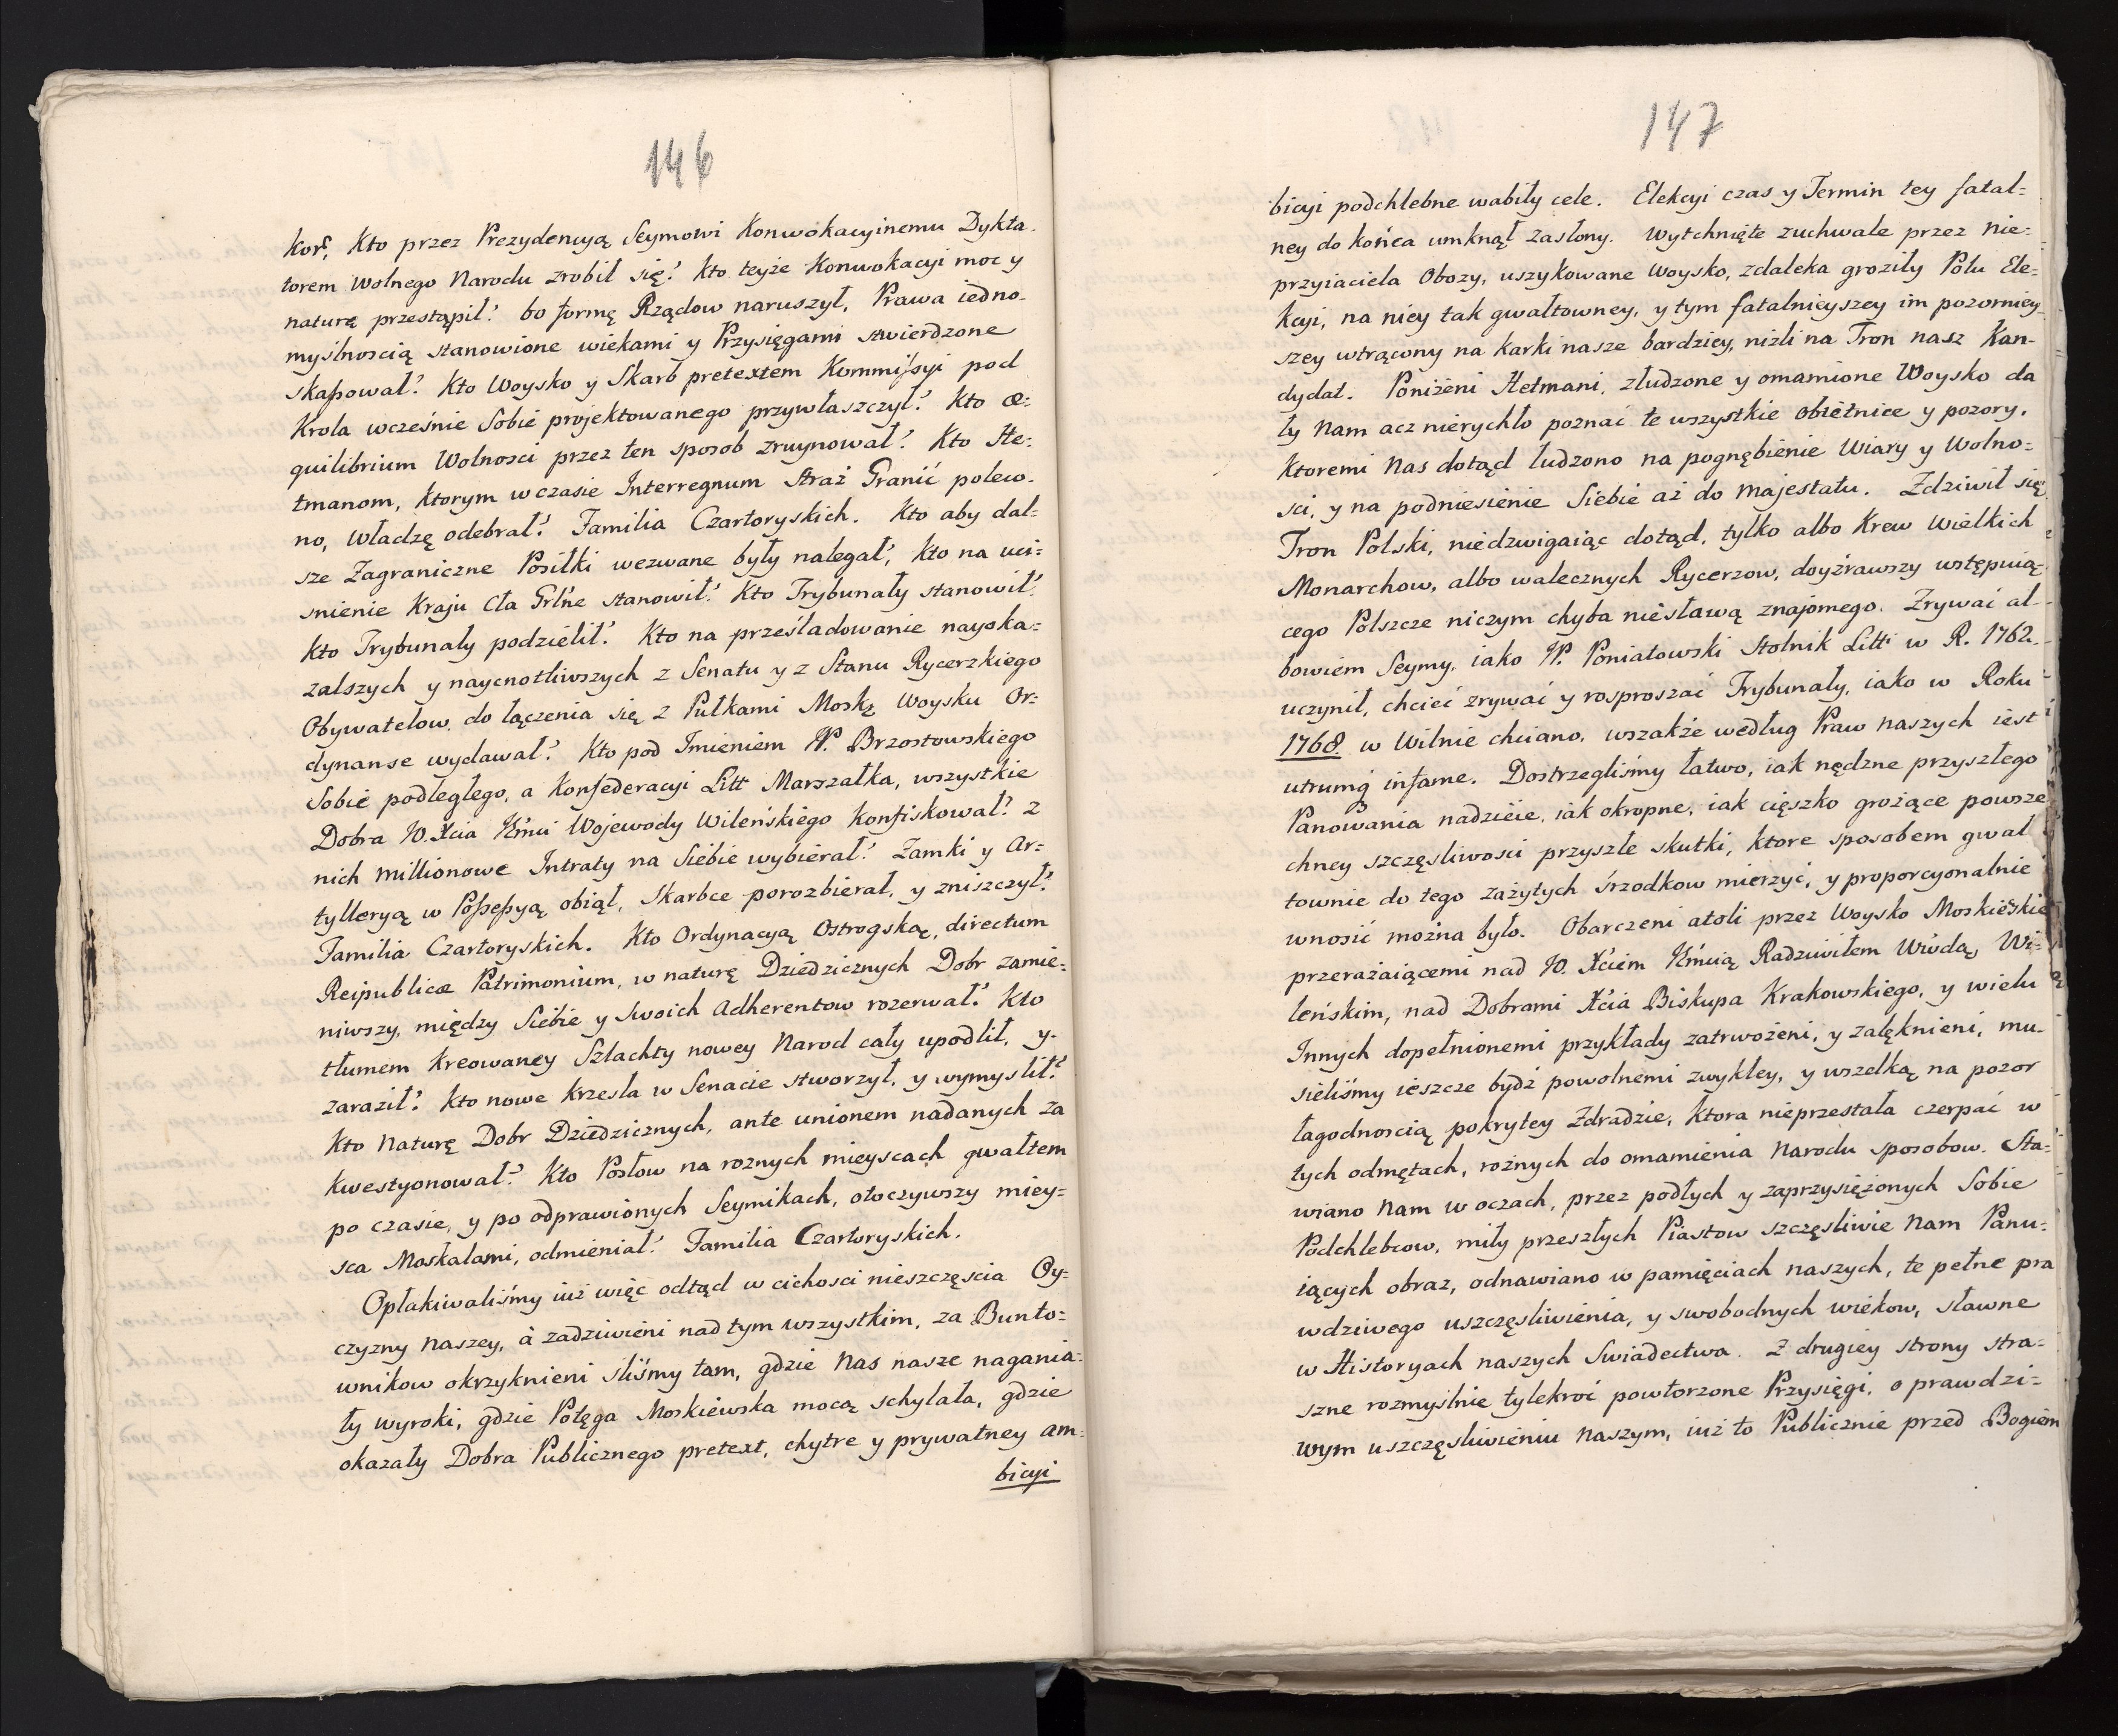 146
kor, Kto przez Prezydencyą Seymowi Konwokacyinemu Dykta-
torem wolnego Narodu zrobił się? kto teyże Konwokacyi moc y
naturę przestąpił? bo formę Rządow naruszył, Prawa iedno-
myślnoscią stanowione wiekami y Przysięgami stwierdzone
skassował? Kto Woysko y Skarb pretextem Kommissyi pod
Krola wcześnie Sobie projektowanego przywłaszczył? kto æ=
quilibrium Wolnosci przez ten sposob zruynował? Kto He=
tmanom, ktorym w czasie Interregnum Straż Granić poleco-
no, władzę odebrał? Familia Czartoryskich. Kto aby dal=
sze Zagraniczne Posiłki wezwane były nalegał, kto na uci=
snienie Kraju Cła Grlne stanowił? Kto Trybunały stanowił?
kto Trybunały podzielił? Kto na prześladowanie nayoka=
zalszych y naycnotliwszych z Senatu y z Stanu Rycerzkiego
Obywatelow, do łączenia się z Pułkami Moskę Woysku Or=
dynanse wydawał? Kto pod Imieniem W. Brzostowskiego
Sobie podległego, a Konfederacyi Litt Marszałka, wszystkie
Dobra JO. Xcia Jmci Wojewody Wileńskiego konfiskował? z
nich millionowe Intraty na Siebie wybierał? Zamki y Ar=
tylleryą w Possessyą obiął, Skarbce porozbierał, y zniszczył?
Familia Czartoryskich. Kto Ordynacyą Ostrogską, directum
Reipublicæ Patrimonium, w naturę Dziedzicznych Dobr zamie=
niwszy, między Siebie y Swoich Adherentow rozerwał? Kto
tłumem kreowaney Szlachty nowey Narod cały upodlił, y-
zaraził? kto nowe krzesła w Senacie stworzył, y wymyslił?
Kto Naturę Dobr Dziedzicznych, ante unionem nadanych za
kwestyonował? Kto Posłow na roznych mieyscach gwałtem
po czasie, y po odprawionych Seymikach, otoczywszy miey=
sca Moskalami, odmieniał? Familia Czartoryskich.
Opłakiwaliśmy iuż więc odtąd w cichosci nieszczęscia Oy=
czyzny naszey, à zadziwieni nad tym wszystkim, za Bunto=
wnikow okrzyknieni śliśmy tam, gdzie Nas nasze nagania=
ły wyroki, gdzie Potęga Moskiewska mocą schylała, gdzie
okazały Dobra Publicznego pretext, chytre y prywatney am=
bicyi
147
bicyi podchlebne wabiły cele. Elekcyi czas y Termin tey fatal=
ney do końca umknął zasłony. Wytchnięte zuchwale przez nie=
przyiaciela Obozy, uszykowane Woysko, zdaleka groziły Polu Ele=
kcyi, na niey tak gwałtowney, y tym fatalnieyszey im pozorniey
szey wtrącony na karki nasze bardziey, niżli na Tron nasz Kan-
dydat. Poniżeni Hetmani, złudzone y omamione Woysko da
ły Nam acz nierychło poznać te wszystkie obietnice y pozory,
ktoremi Nas dotąd łudzono na pognębienie Wiary y Wolno=
sci, y na podniesienie Siebie aż do Majestatu. Zdziwił się
Tron Polski, niedzwigaiąc dotąd, tylko albo Krew Wielkich
Monarchow, albo walecznych Rycerzow, doyźrawszy wstępuią=
cego Polszcze niczym chyba niesławą znajomego. Zrywać al-
bowiem Seymy, iako W. Poniatowski Stolnik Litt: w R. 1762.
uczynił, chcieć zrywać y rosproszać Trybunały, iako w Roku
1768. w Wilnie chciano, wszakże według Praw naszych iest
utrumq infame. Dostrzegliśmy łatwo, iak nędzne przyszłego
Panowania nadzieie, iak okropne, iak cięszko grożące powsze
chney szczęsliwosci przyszłe skutki, ktore sposobem gwał
townie do tego zażytych śrzodkow mierzyć, y proporcyonalnie
wnosić można było. Obarczeni atoli przez Woysko Moskiewskie
przerażaiącemi nad JO. Xciem Jmcią Radziwiłem Wwdą, Wi=
leńskim, nad Dobrami Xcia Biskupa Krakowskiego, y wielu
Innych dopełnionemi przykłady zatrwożeni, y zalęknieni, mu-
sieliśmy ieszcze bydź powolnemi zwykłey, y wszelką na pozor
łagodnoscią pokrytey Zdradzie, ktora nieprzestała czerpać w
tych odmętach, rożnych do omamienia Narodu sposobow. Sta=
wiano Nam w oczach, przez podłych y zaprzysiężonych Sobie
Podchlebcow, miły przeszłych Piastow szczęsliwie Nam Panu=
iących obraz, odnawiano w pamięciach naszych, te pełne pra
wdziwego uszczęsliwienia, y swobodnych wiekow, sławne
w Historyach naszych Swiadectwa. Z drugiey strony stra=
szne rozmyślnie tylekroć powtorzone Przysięgi, o prawdzi=
wym uszczęsliwieniu naszym, iuż to Publicznie przed Bogiem